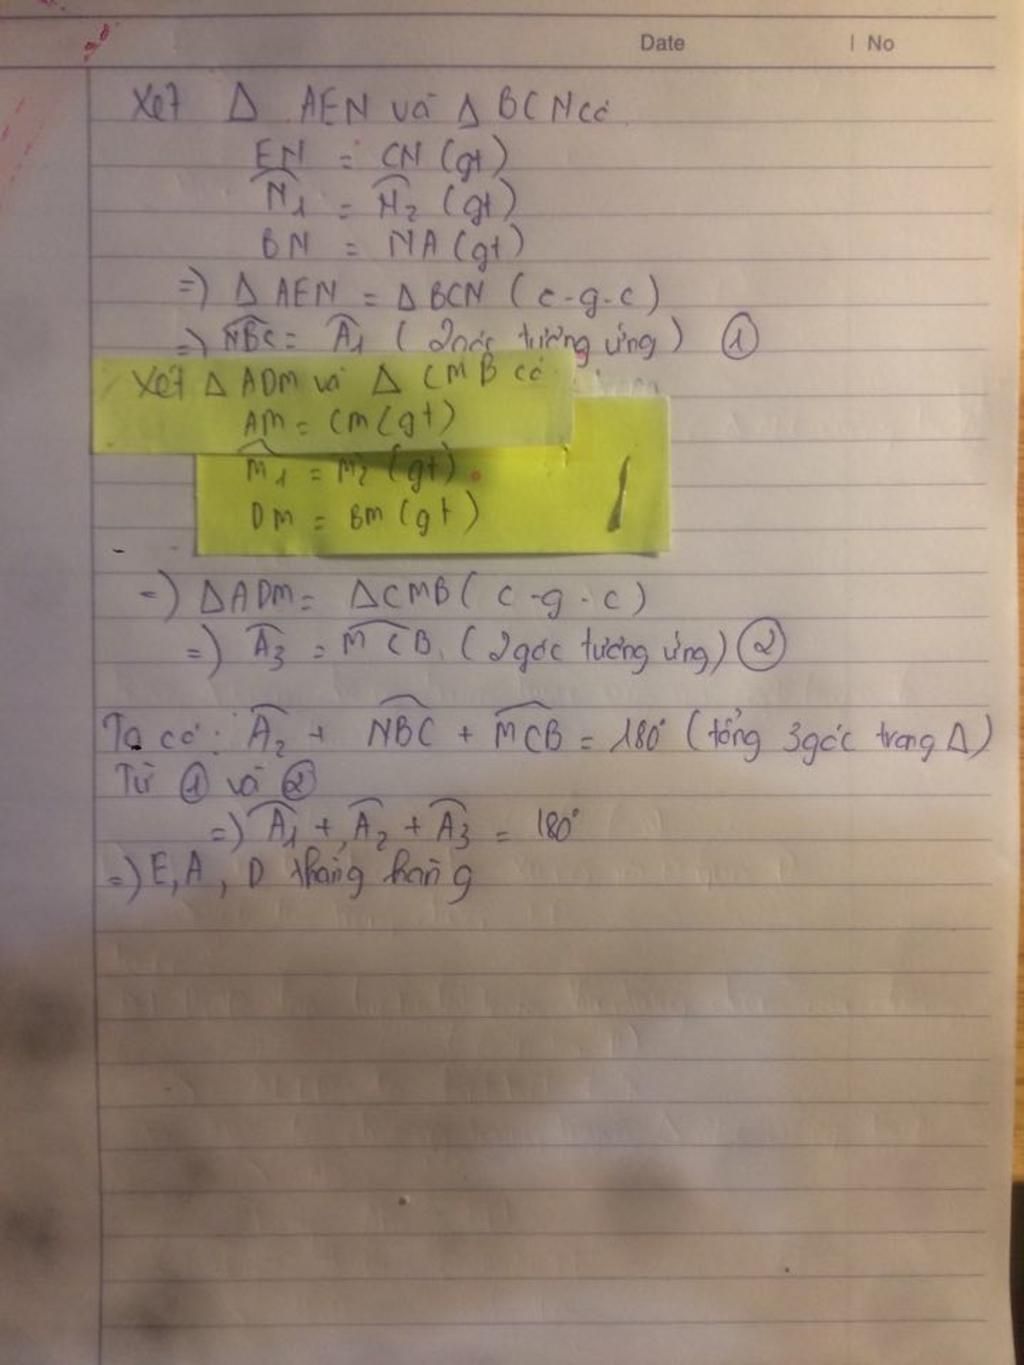 Date | No
Xét Δ AEN và Δ BCN có
EN = CN (gt)
N̂₁ = N̂₂ (gt)
BN = NA (gt)
=) Δ AEN = Δ BCN (c-g-c)
=) N͡BC = Â₁ (2 góc tương ứng) ①
Xét Δ ADM và Δ CMB có
AM = CM (gt)
M̂₁ = M₂ (gt)
DM = BM (gt)
=) ΔADM = ΔCMB (c-g-c)
=) Â₃ = M͡CB (2 góc tương ứng) ②
Ta có: Â₂ + N͡BC + M͡CB = 180° (tổng 3 góc trong Δ)
Từ ① và ②
=) Â₁ + Â₂ + Â₃ = 180°
=) E, A, D thẳng hàng